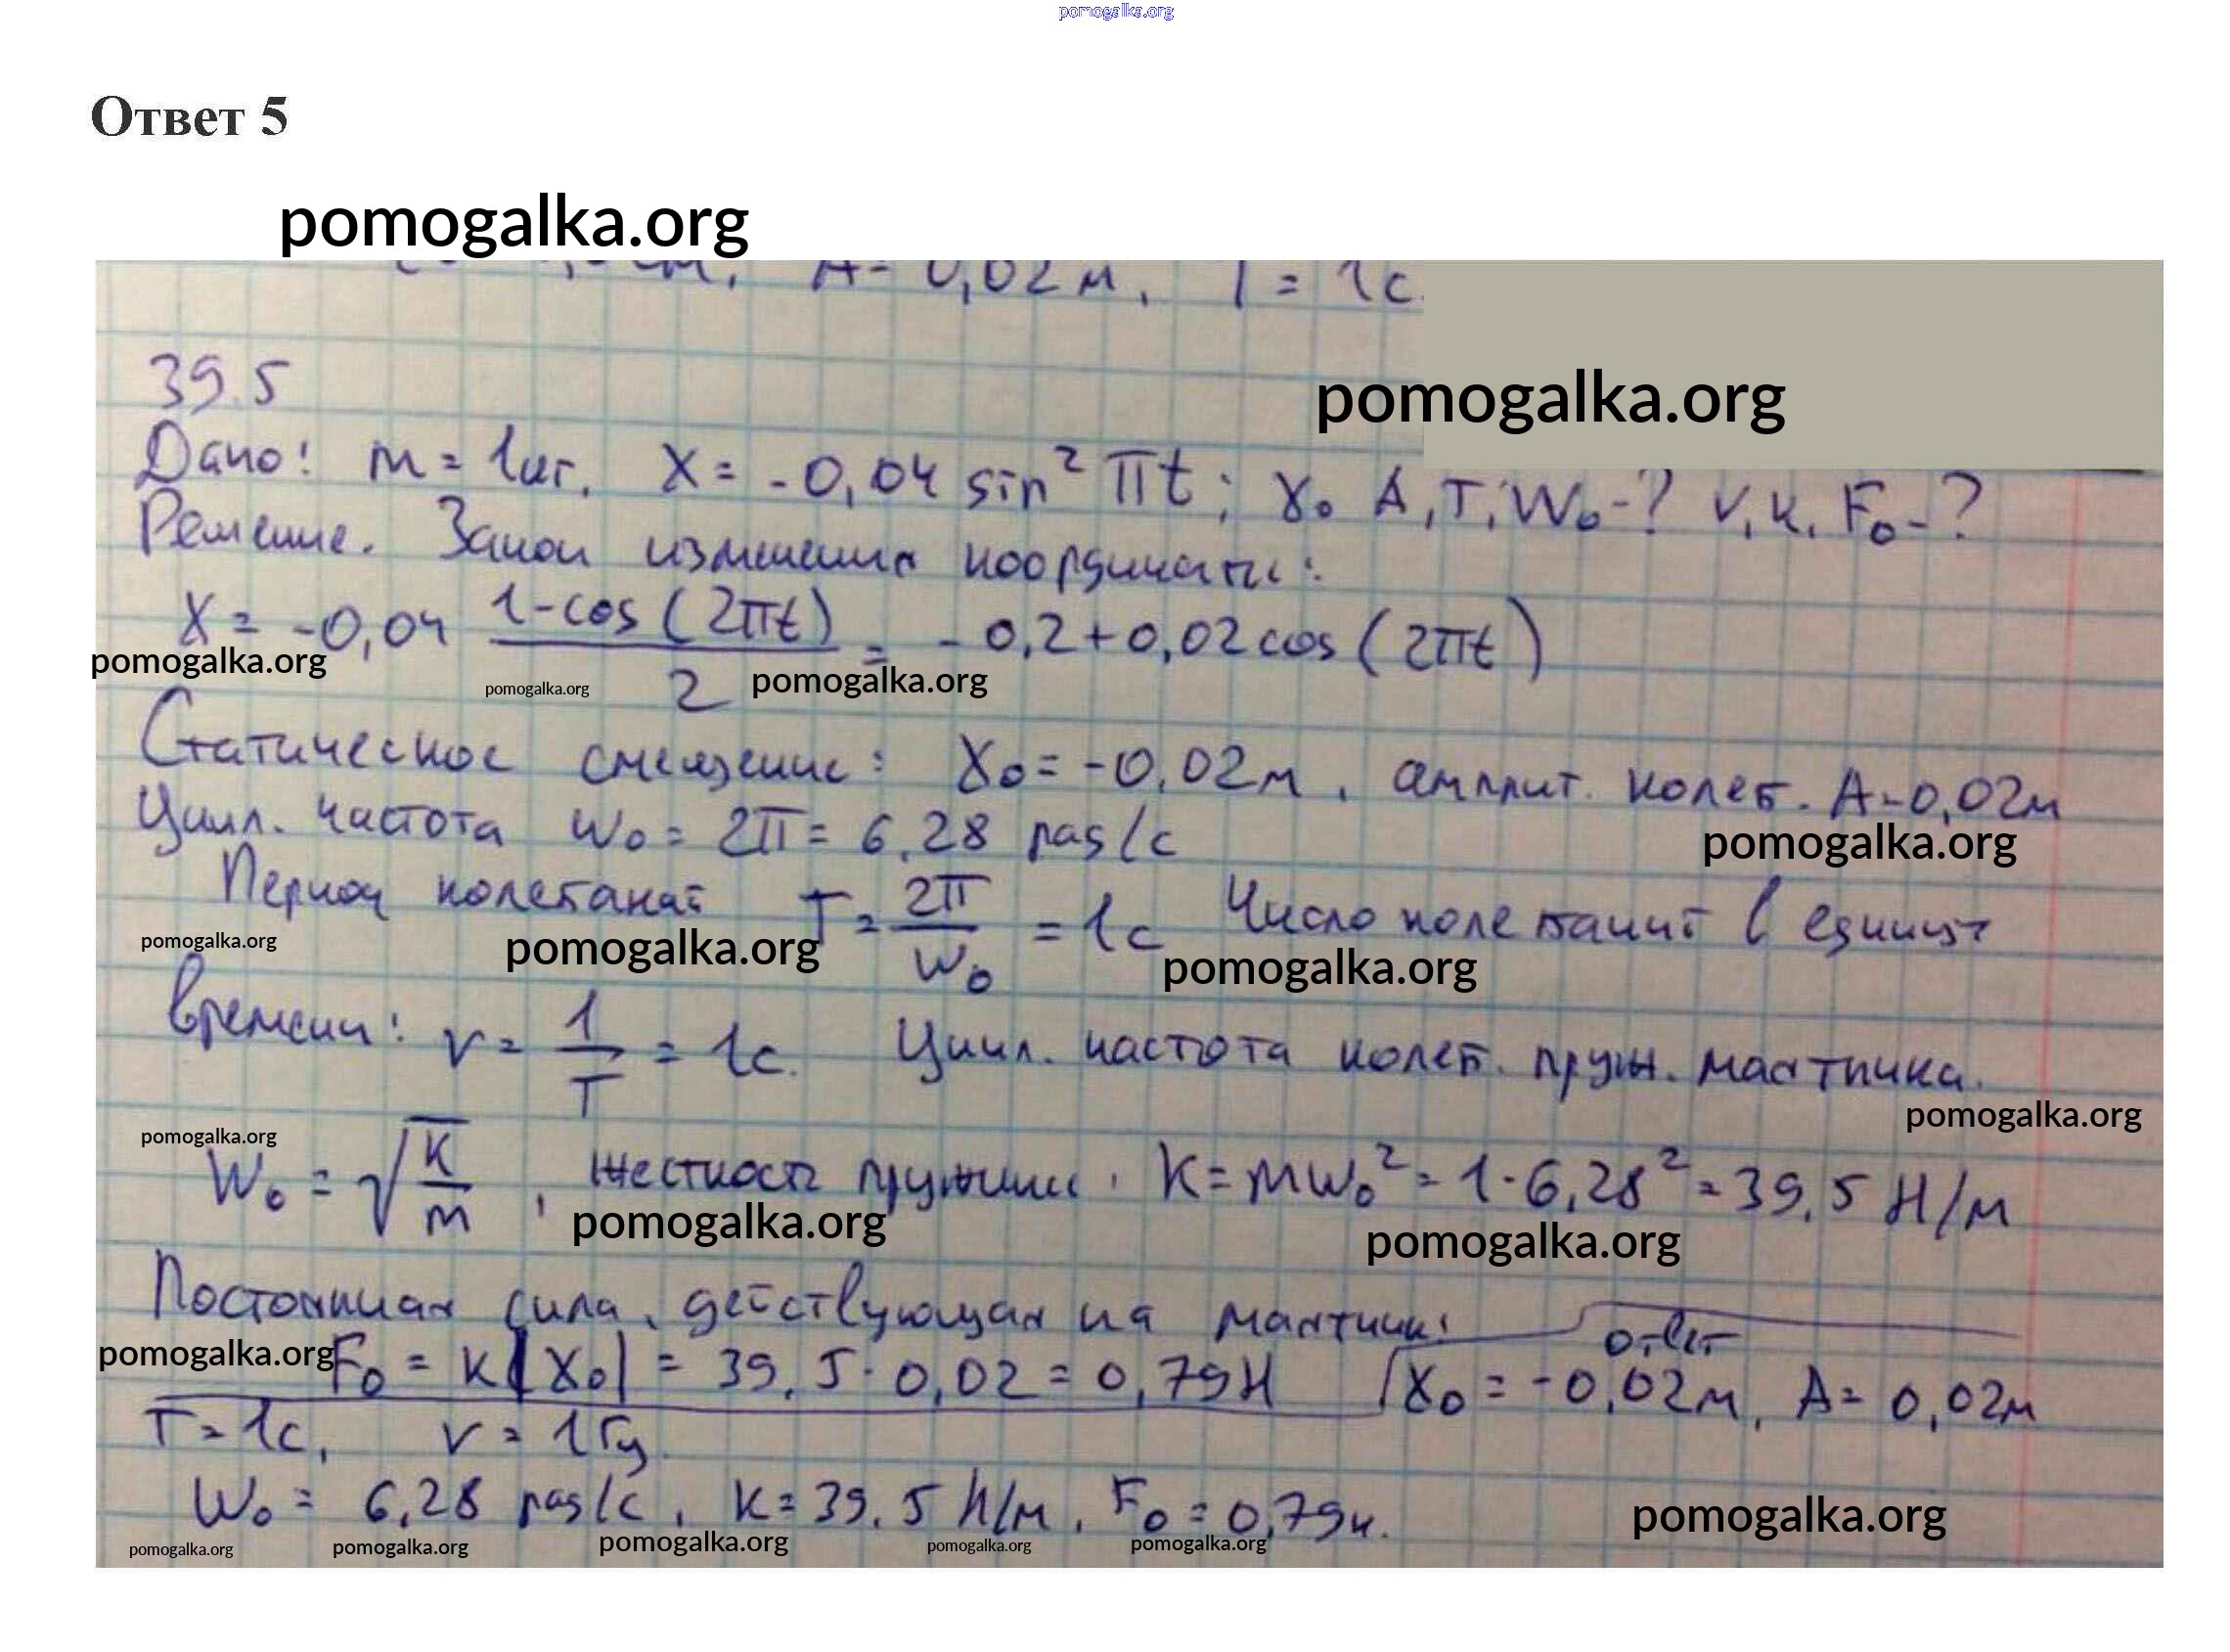 pomogalka.org
Ответ 5
pomogalka.org
A = 0,02м, T = 1с.
39.5
pomogalka.org
Дано: m = 1кг, X = -0,04 sin² πt; X₀ A, T, W₀ -? ν, к, F₀ -?
Решение. Закон изменения координаты:
X = -0,04 (1-cos(2πt))/2 = -0,2 + 0,02 cos(2πt)
pomogalka.org pomogalka.org pomogalka.org
Статическое смещение: X₀ = -0,02м, амплит. колеб. A = 0,02м
Цикл. частота W₀ = 2π = 6,28 рад/с
pomogalka.org
Период колебаний T = 2π/W₀ = 1с Число колебаний в единицу
pomogalka.org pomogalka.org pomogalka.org
времени: ν = 1/T = 1с. Цикл. частота колеб. пруж. маятника.
pomogalka.org pomogalka.org
W₀ = √(к/m), жесткость пружины, K = mW₀² = 1·6,28² = 39,5 Н/м
pomogalka.org pomogalka.org
Постоянная сила, действующая на маятник: ответ
pomogalka.org F₀ = K|X₀| = 39,5·0,02 = 0,79Н X₀ = -0,02м, A = 0,02м
T = 1с, ν = 1Гц
W₀ = 6,28 рад/с, K = 39,5 Н/м, F₀ = 0,79н.
pomogalka.org
pomogalka.org pomogalka.org pomogalka.org pomogalka.org pomogalka.org